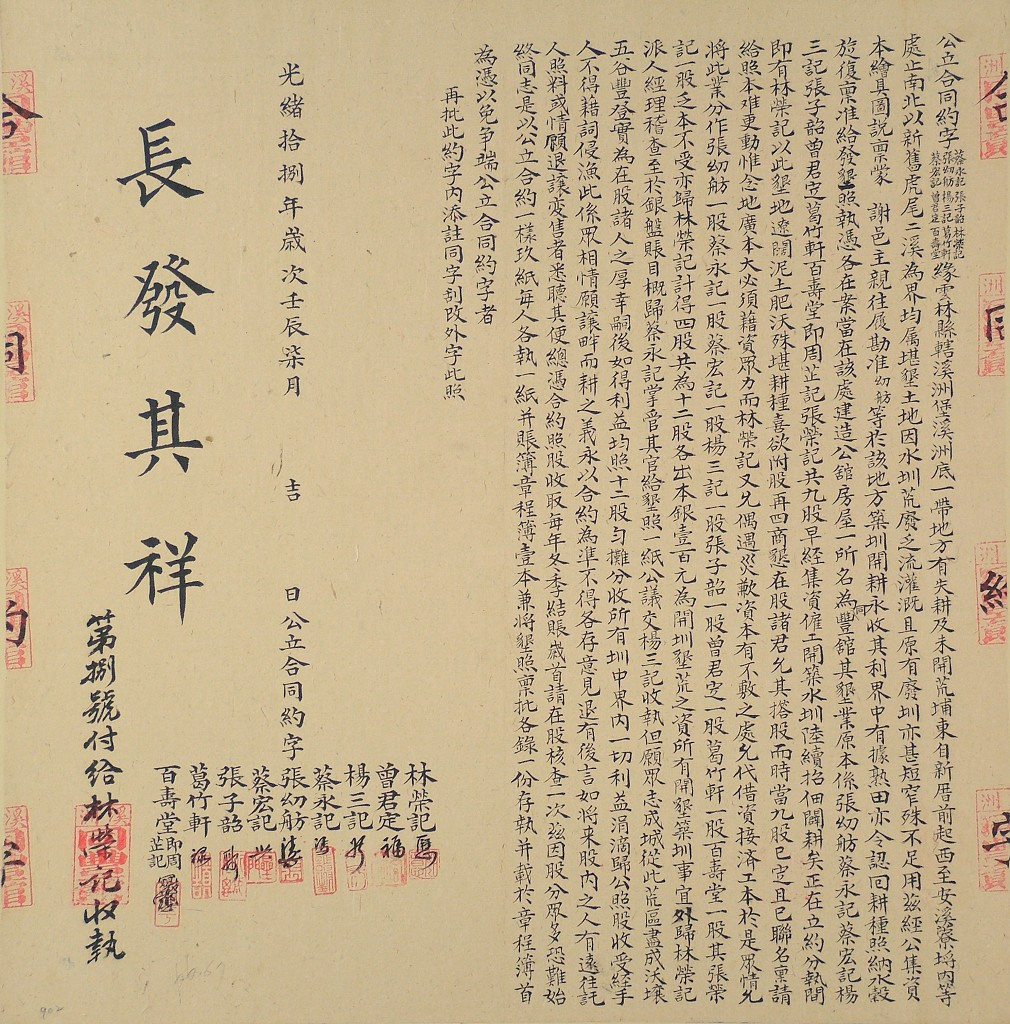 公立合同約字蔡永記張子韶林榮記張幼舫楊三記葛竹軒蔡宏記曾君定百壽堂緣雲林縣轄溪洲堡溪洲底一帶地方有失耕及未開荒埔東自新厝前起西至安溪藔埒內等
處止南北以新舊虎尾二溪為界均属堪墾土地因水圳荒廢乏流灌溉且原有廢圳亦甚短窄殊不足用茲經公集資
本繪具圖說稟蒙 謝邑主親往履勘准幼舫等於該地方築圳開耕永收其利界中有據熟田亦令認回耕種照納水穀
旋復稟准給發墾照執憑各在案當在該處建造公舘房屋一所名為同豐舘其墾業原本係張幼舫蔡永記蔡宏記楊
三記張子韶曾君定葛竹軒百壽堂即周芷記張榮記共九股早經集資僱工開築水圳陸續招佃闢耕矣正在立約分執間
即有林榮記以此墾地遼闊泥土肥沃殊堪耕種喜欲附股再四商懇在股諸君允其搭股而時當九股已定且已聯名稟請
給照本难更動惟念地廣本大必須藉資眾力而林榮記又允偶遇災歉資本有不敷之處允代借資接濟工本於是眾情允
將此業分作張幼舫一股蔡永記一股蔡宏記一股楊三記一股張子韶一股曾君定一股葛竹軒一股百壽堂一股其張榮
記一股之本不受亦歸林榮記計得四股共為十二股各出本銀壹百元為開圳墾荒之資所有開墾築圳事宜外歸林榮記
派人經理稽查至於銀盤賬目概歸蔡永記掌管其官給墾照一紙公議交楊三記收執但願眾志成城從此荒區盡成沃壤
五谷豐登實為在股諸人之厚幸嗣後如得利益均照十二股勻攤分收所有圳中界內一切利益涓滴歸公照股收受經手
人不得藉詞侵漁此係眾相情願讓畔而耕之義永以合約為準不得各存意見退有後言如將来股內之人有遠往託
人照料或情願退讓变售者悉聽其便總憑合約照股收取每年冬季結賬歲首請在股核查一次茲因股分眾多恐難始
終同志是以公立合約一樣玖紙每人各執一紙并賬簿章程簿壹本兼將墾照稟批各錄一份存執并載於章程簿首
為憑以免争端公立合同約字者
再批此約字內添註同字刮改外字此照
光緒拾捌年歲次壬辰柒月 吉 日公立合同約字
林榮記
曾君定
楊三記
蔡永記
張幼舫
蔡宏記
張子韶
葛竹軒
百壽堂即周芷記
長發其祥
第捌號付給林榮記收執
合同約字